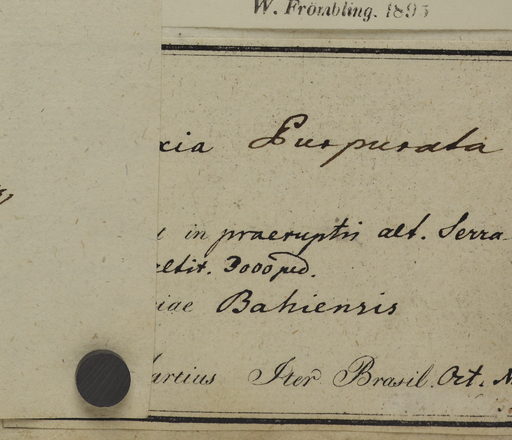 W. Frömbling. 1893
xia Purpurata
in praeruptis alt. Serra
altit. 3000 ped.
iae Bahiensis
artius Iter Brasil. Oct. N